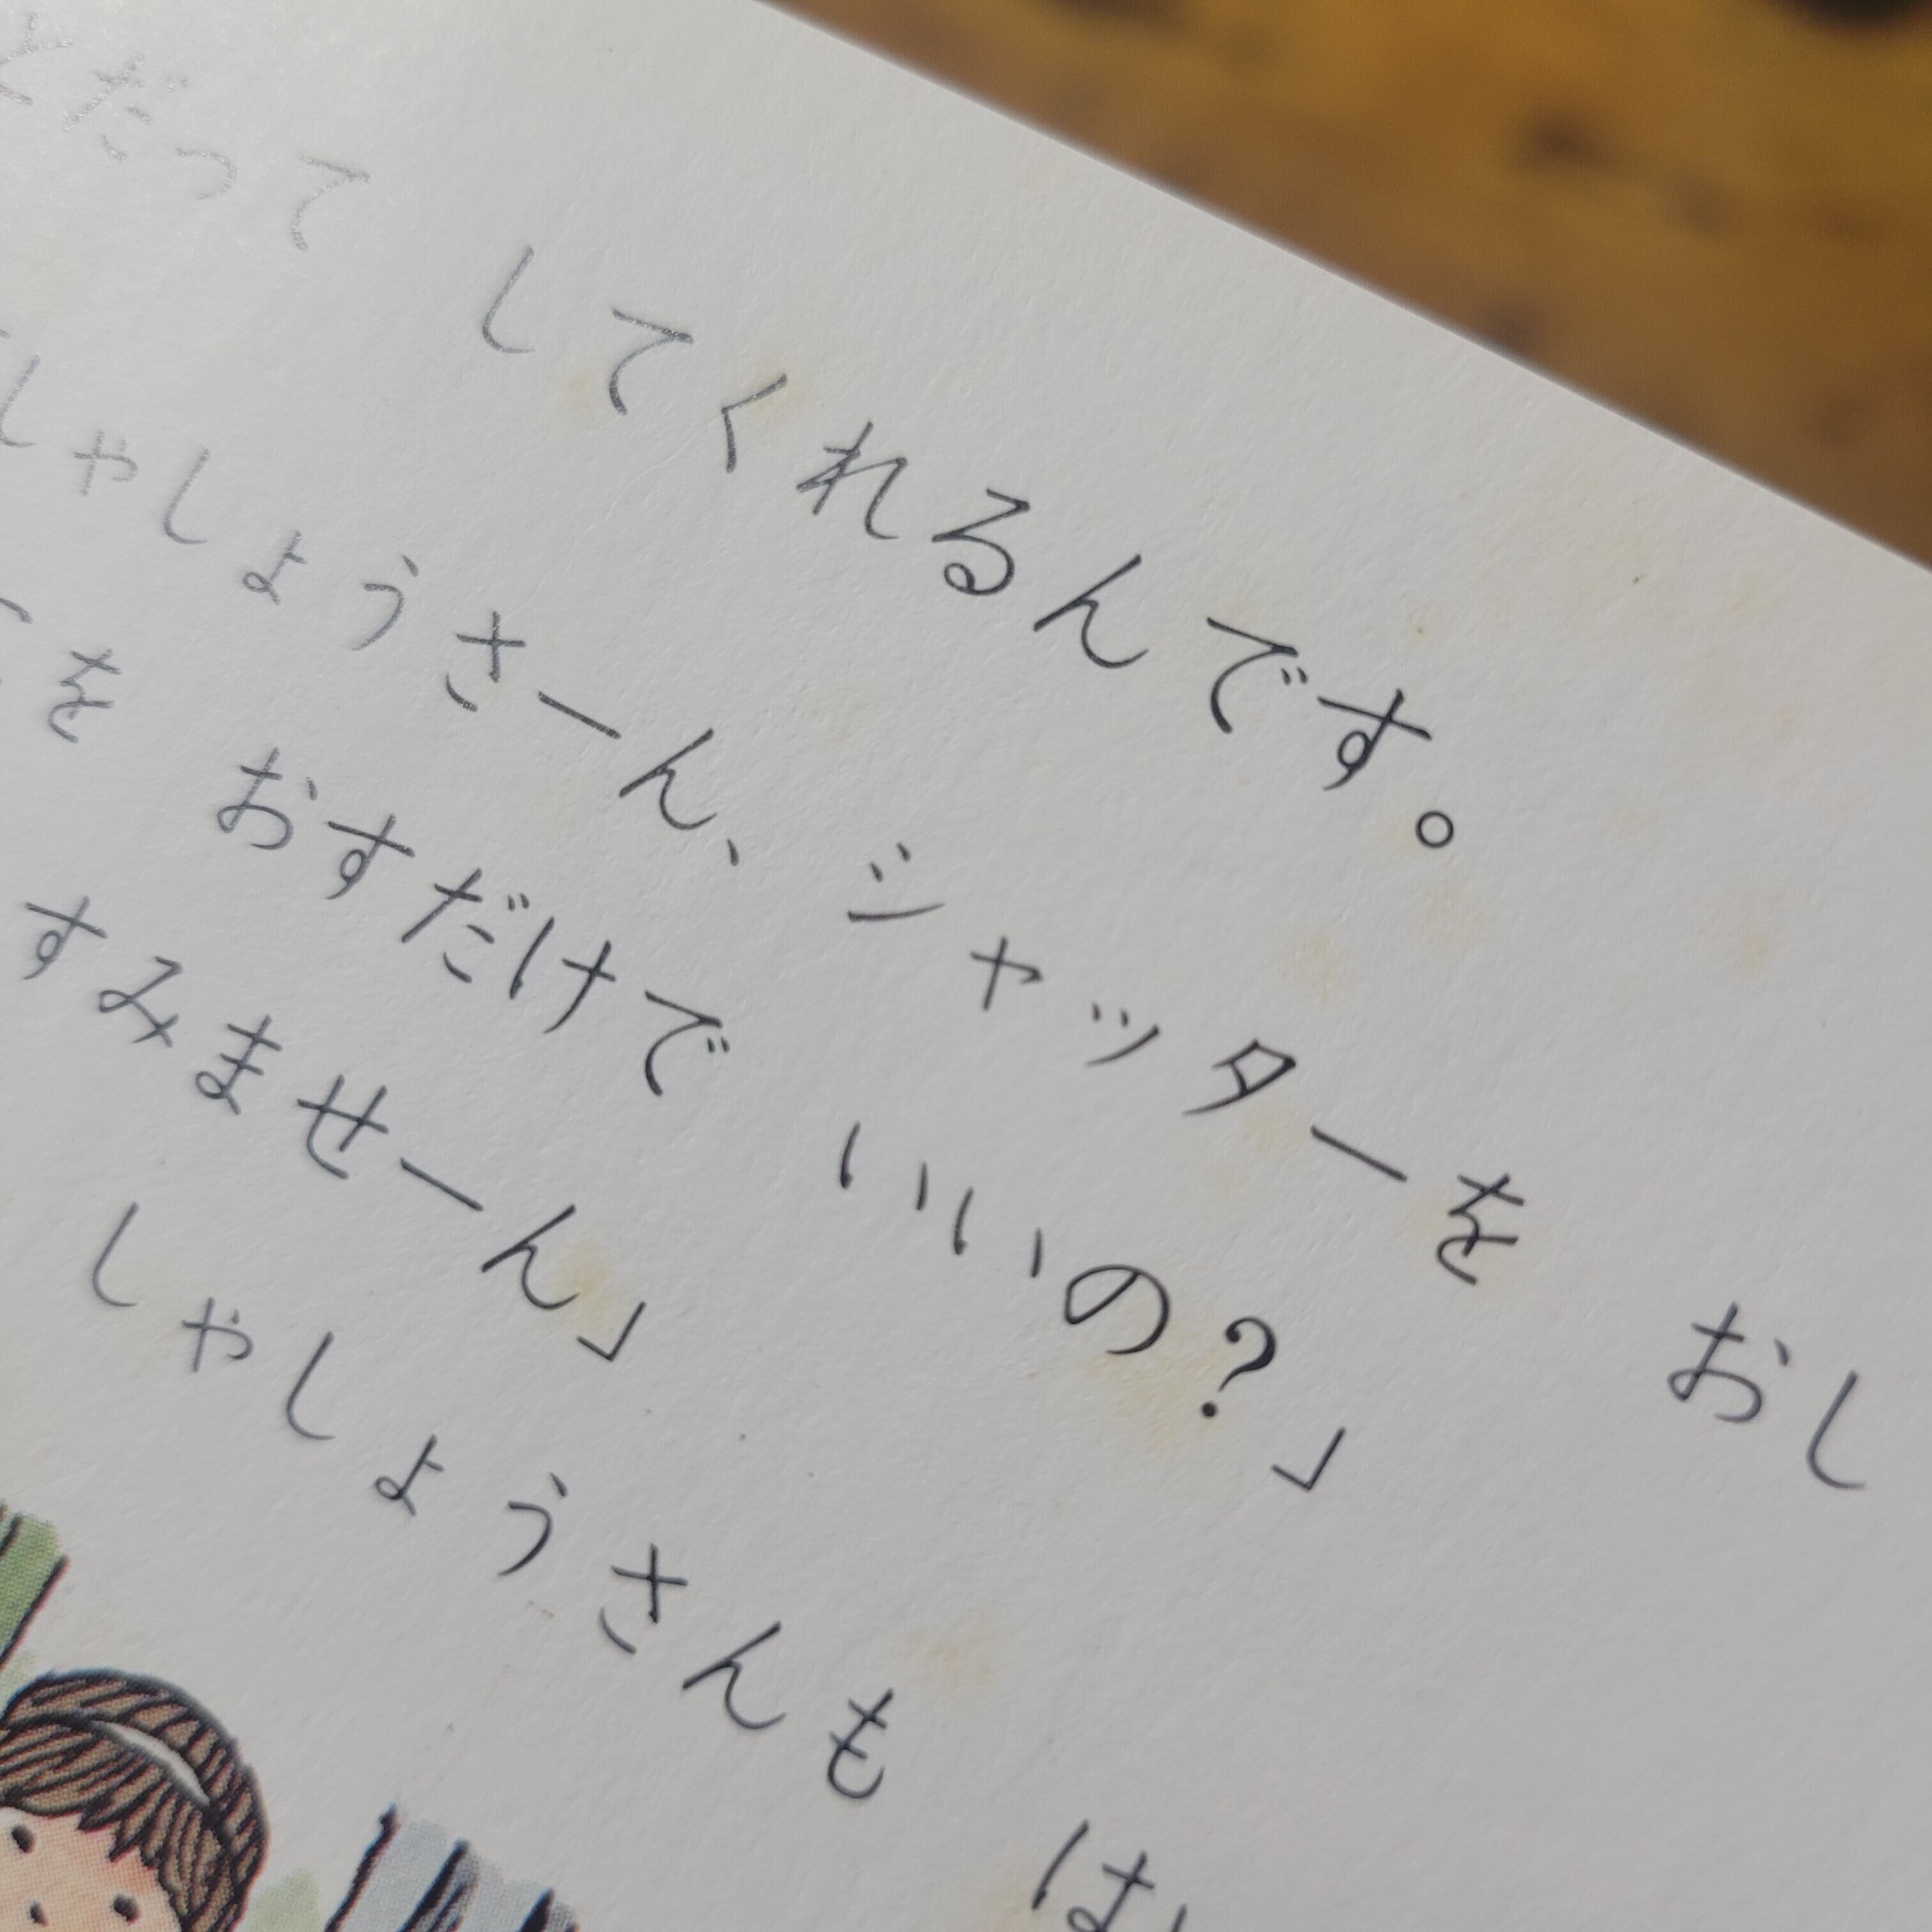 だって してくれるんです。
しゃしょうさーん、 シャッターを おし
を おすだけで いいの?」
すみませーん」
しゃしょうさんも は